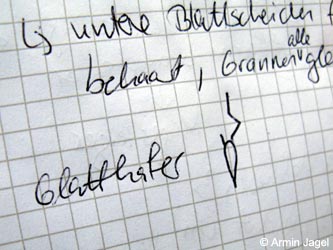 ↳ untere Blattscheiden
behaart, Grannen alle gle
Glatthafer
© Armin Jagel